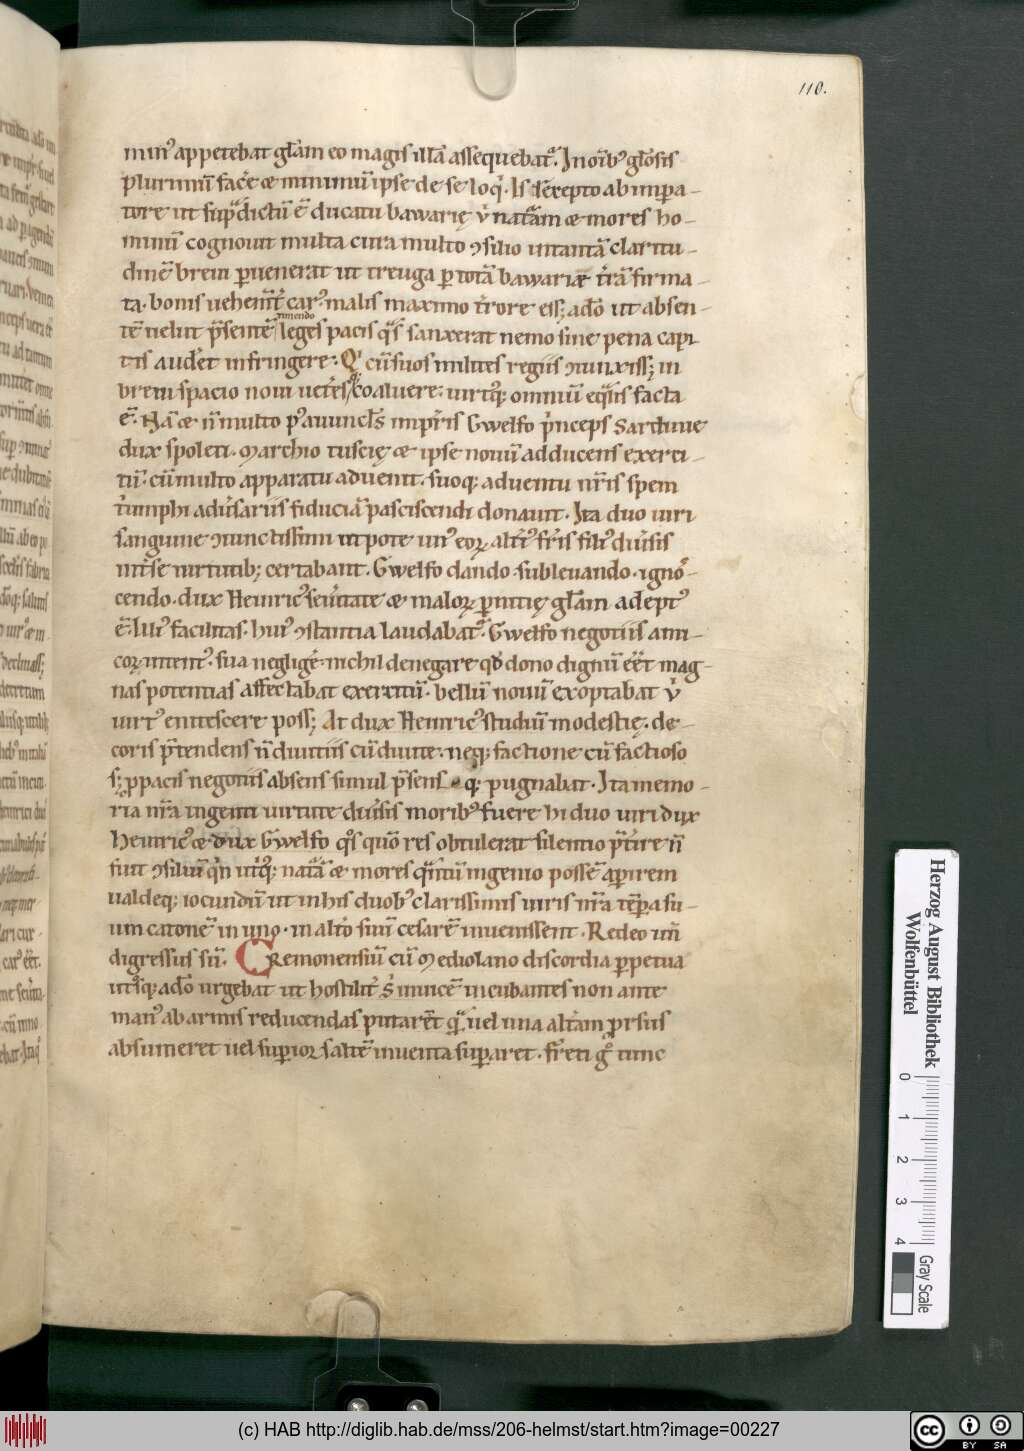 110.
min᷒ appetebat gl̄am eo magis illā assequebat᷑. In oı̄b᷒ gl̄osis
plurimū fac̄e & minimū ipse de se loq̇. Is suscepto ab impera-
tore ut sup̄dictū ē ducatu bawarię t̄ natā̄m & mores ho-
minū cognouit multa cura multo ꝯsilio in tantā claritu-
dinē breui ꝑuenerat ut treuga ꝑ totā bawariæ t̄rā firma-
ta. bonis uehem̄t̄ car᷒ malis maximo t̄rore eēt; adō ut absen-
tē uelut p̄sentē timendo leges pacis q̄s sanxerat nemo sine pena capi
tis audēt infringere. Q cū suos milites regiis ꝯiunxiss; in
breui spacio noui uet̄es coaluere. uirtq; omniū eq̄lis facta
ē. Nā & n̄ multo p᷒ auuncl̄s imp̄ris Gwelfo p̄nceps Sardinie
dux spoleti. marchio tuscię & ipse nouū adducens exerci-
tū. cū multo apparatu aduenit. suoq; aduentu nr̄is spem
t̄umphi adūsariis fiduciā pasciscendi donauit. Ita duo uiri
sanguine ꝯiunctissimi utpote un᷒ eoꝝ alt̄i᷒ fr̄is fili᷒ diūsis
int̄se uirtutib; certabant. Gwelfo dando subleuando. ignos-
cendo. dux Heinric᷒ seūitate & maloꝝ ꝑnitię gl̄am adept᷒
ē. Illi᷒ facilitas. hui᷒ ꝯstantia laudabat᷑. Gwelfo negotiis ami-
coꝝ intent᷒. sua negligē. nichil denegare qd̄ dono dignū eēt mag-
nas potentias affectabat exercitū. bellū nouū exoptabat ů
uirt᷒ enitescere poss; At dux Heinric᷒ studiū modestię. de-
coris p̄tendens n̄ diuitiis cū diuite. neq; factione cū factioso
s; ꝓ pacis negotiis absens simul p̄sensq; pugnabat. Ita memo-
ria nr̄a ingenti uirtute diūsis morib᷒ fuere hi duo uiri dux
Heinric᷒ & dux Gwelfo. q̊s quō res obtulerat silentio p̄t̄ire n̄
fuit ꝯsiliū q̄n ut̄q; natā̄ & mores q̄ntū ingenio possē aꝑirem
ualdeq; iocundū ut in his duob᷒ clarissimis uiris nr̄a tēꝑa su-
um catonē in uno. in alt̄o suū cesarē inuenissent. Redeo un̄
digressus sū. Cremonensiū cū mediolano discordia ꝑpetua
ut̊sq; adō urgebat ut hostilit̄ s̄ inuicē incubantes non ante
man᷒ ab armis reducendas putarēt q̄ uel una alt̄am prorsus
absumeret uel superior saltē inuenta superaret. fr̄eti ḡ tunc
Herzog August Bibliothek
Wolfenbüttel
0 1 2 3 4
Gray Scale
(c) HAB http://diglib.hab.de/mss/206-helmst/start.htm?image=00227
cc BY SA